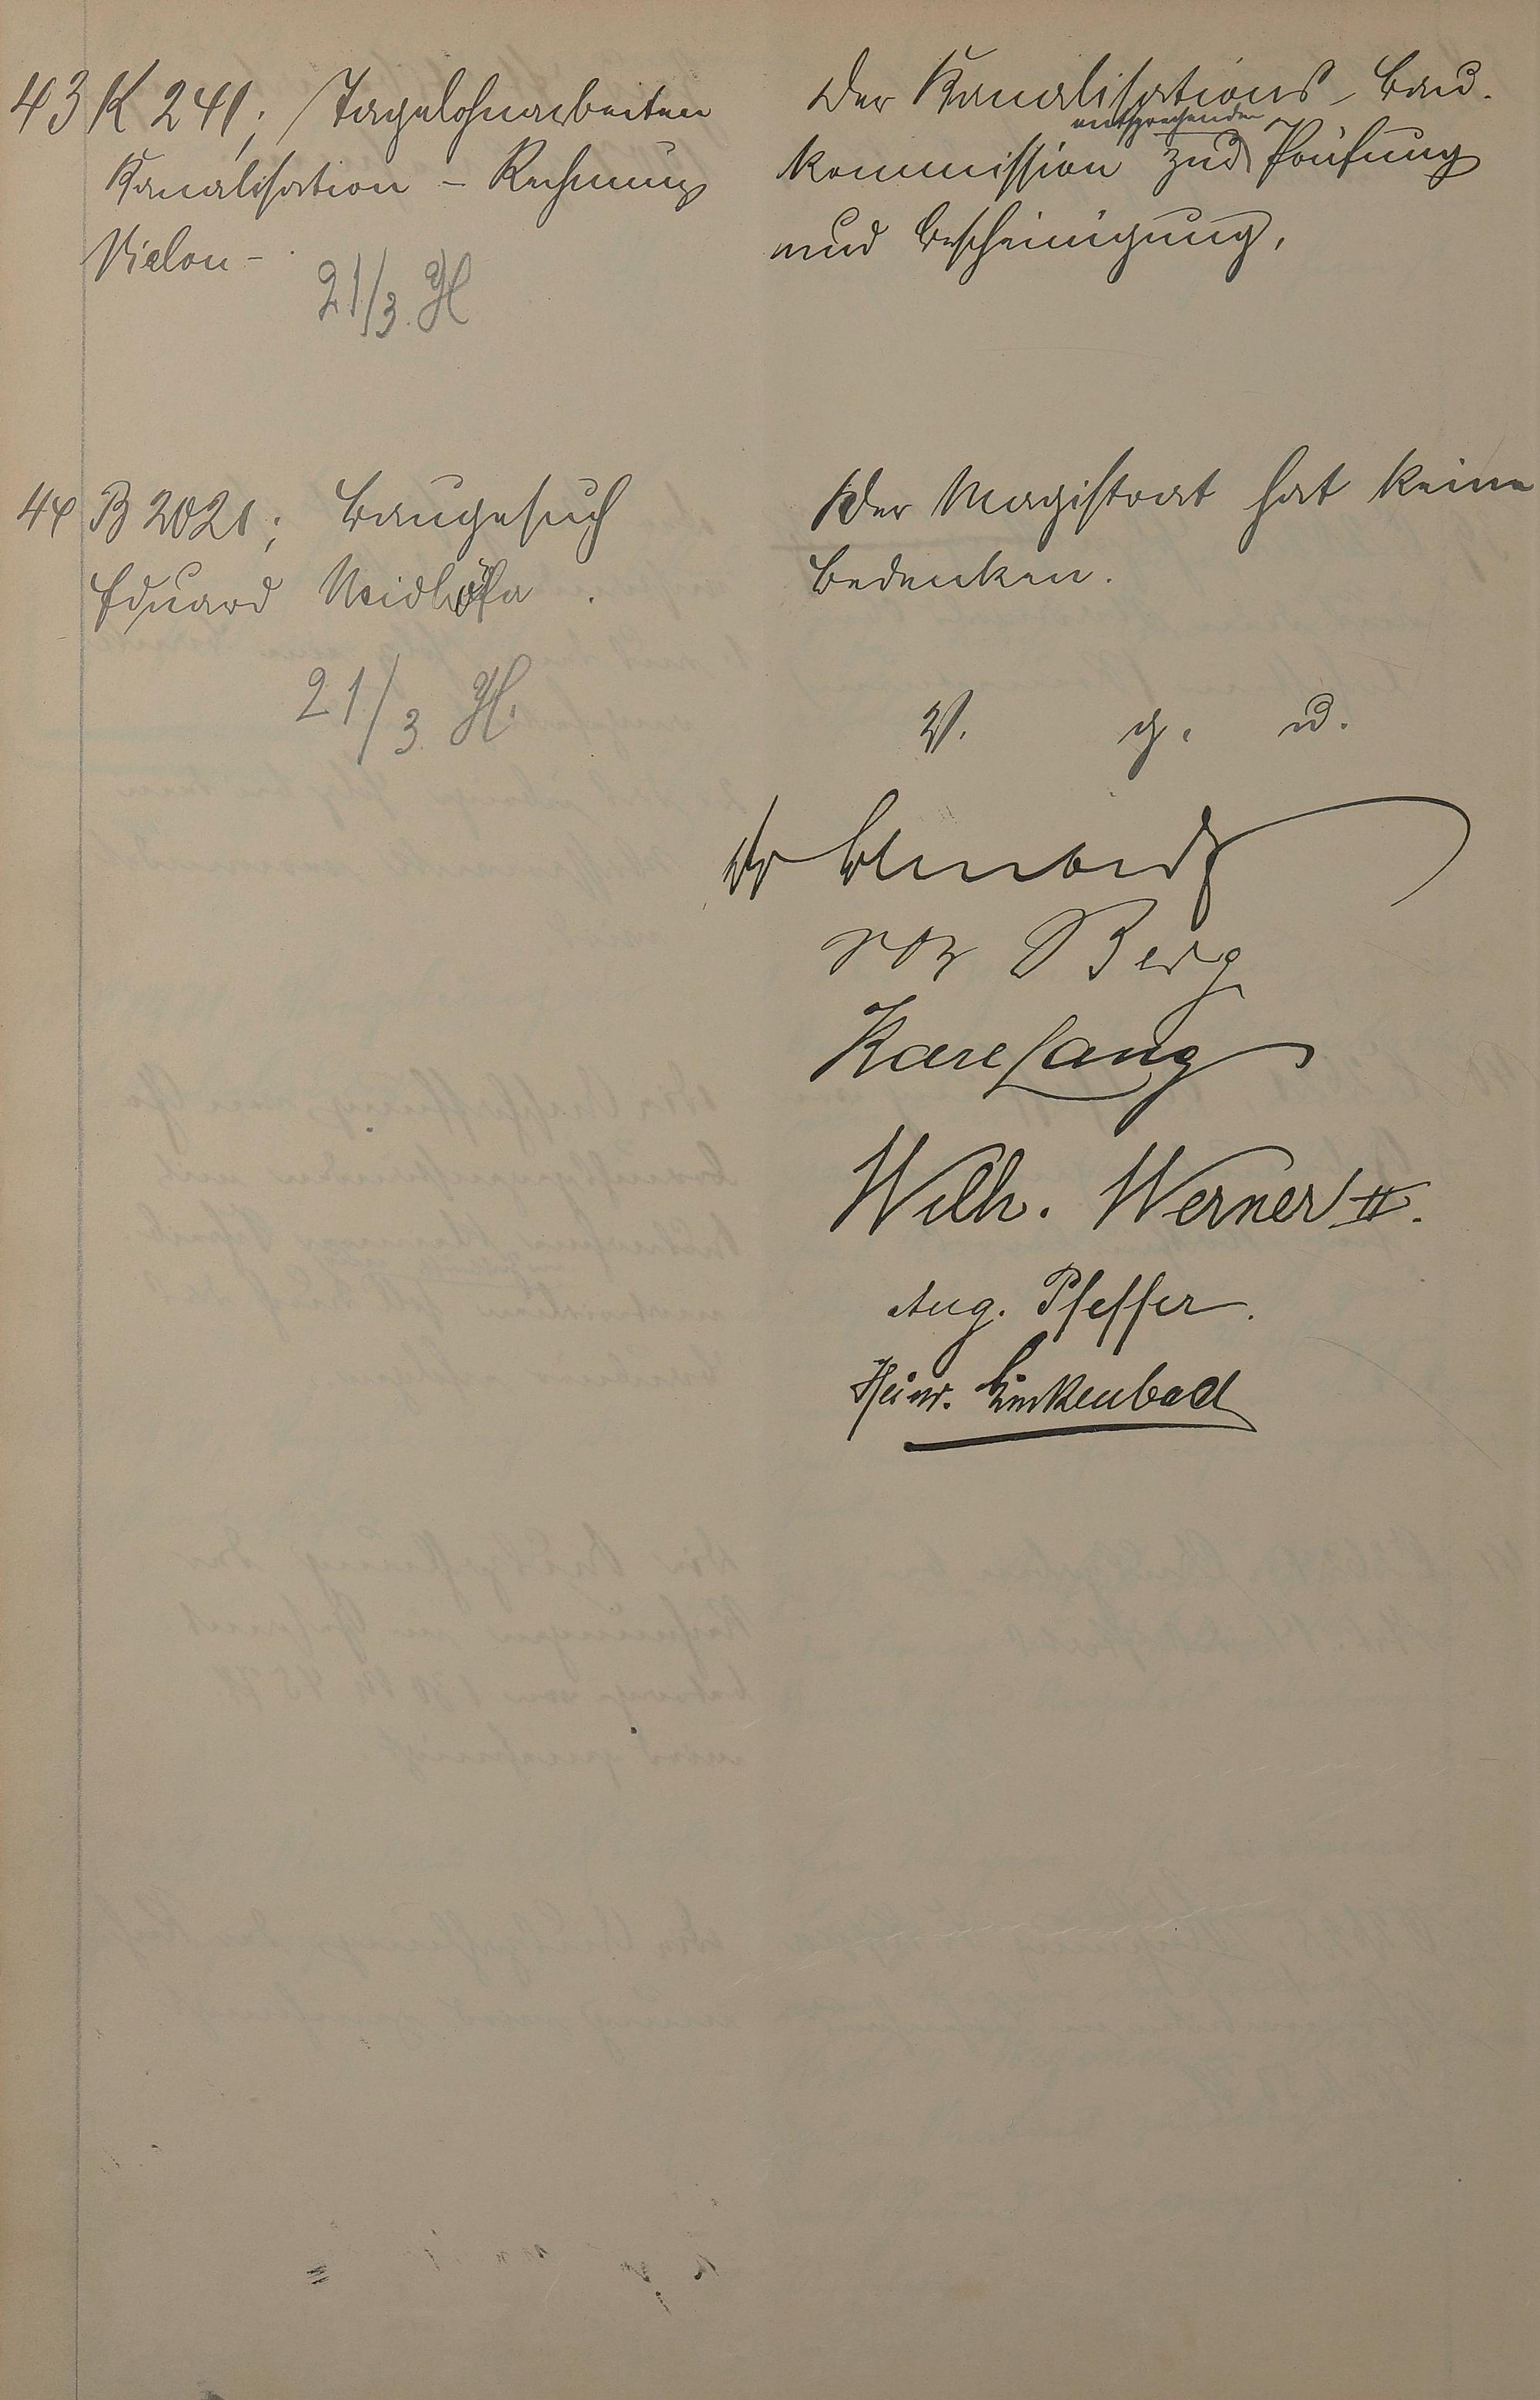 43 K 241; Tagelohnarbeiten
Kanalisation - Rechnung
Vielon -
21/3. H
Der Kanalisations-Bau-
kommission zur entsprechenden Prüfung
und Bescheinigung.
44 B 2021; Baugesuch
Eduard
21/3. H.
Der Magistrat hat keine
Bedenken.
V. g. u.
Dr
von Berg
Karl Lang
Wilh. Werner II.
Aug. Pfeffer.
Heinr. Linkenbach